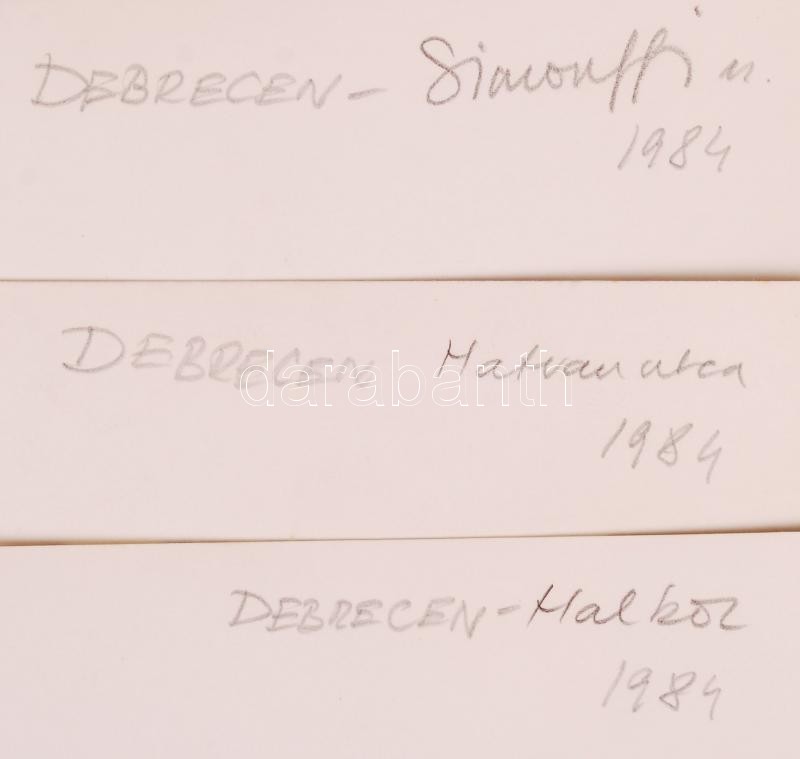 DEBRECEN - Simonffi u.
1984
DEBRECEN Hatvan utca
darabanth
1984
DEBRECEN - Halköz
1984